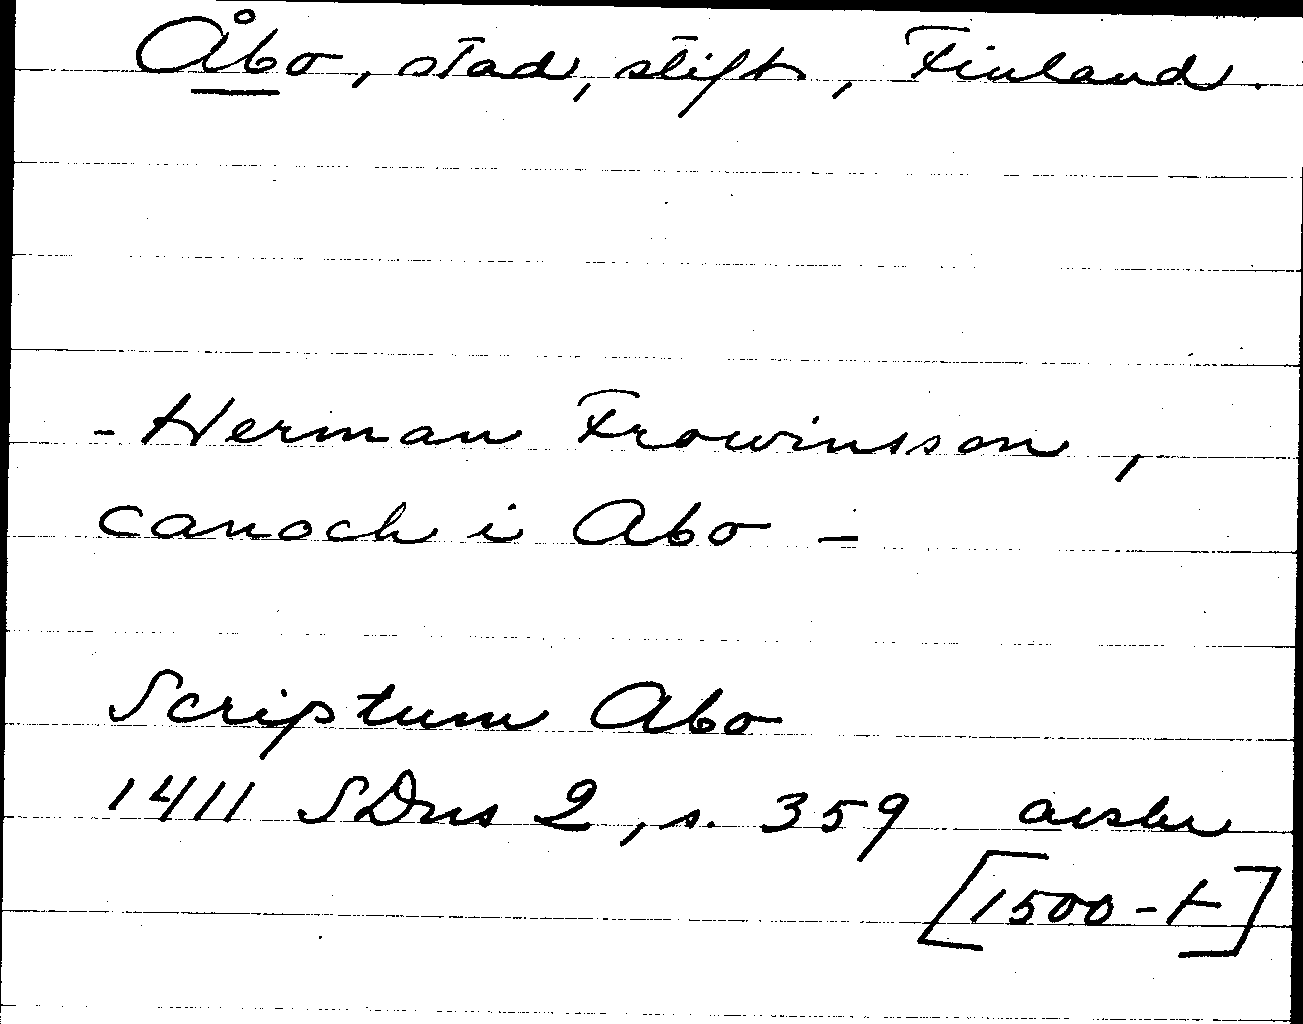 Åbo, stad, stift, Finland.
- Herman Frowinsson,
canoch i Abo -
Scriptum Abo
1411 SDns 2, s. 359 avskr
[1500-t]